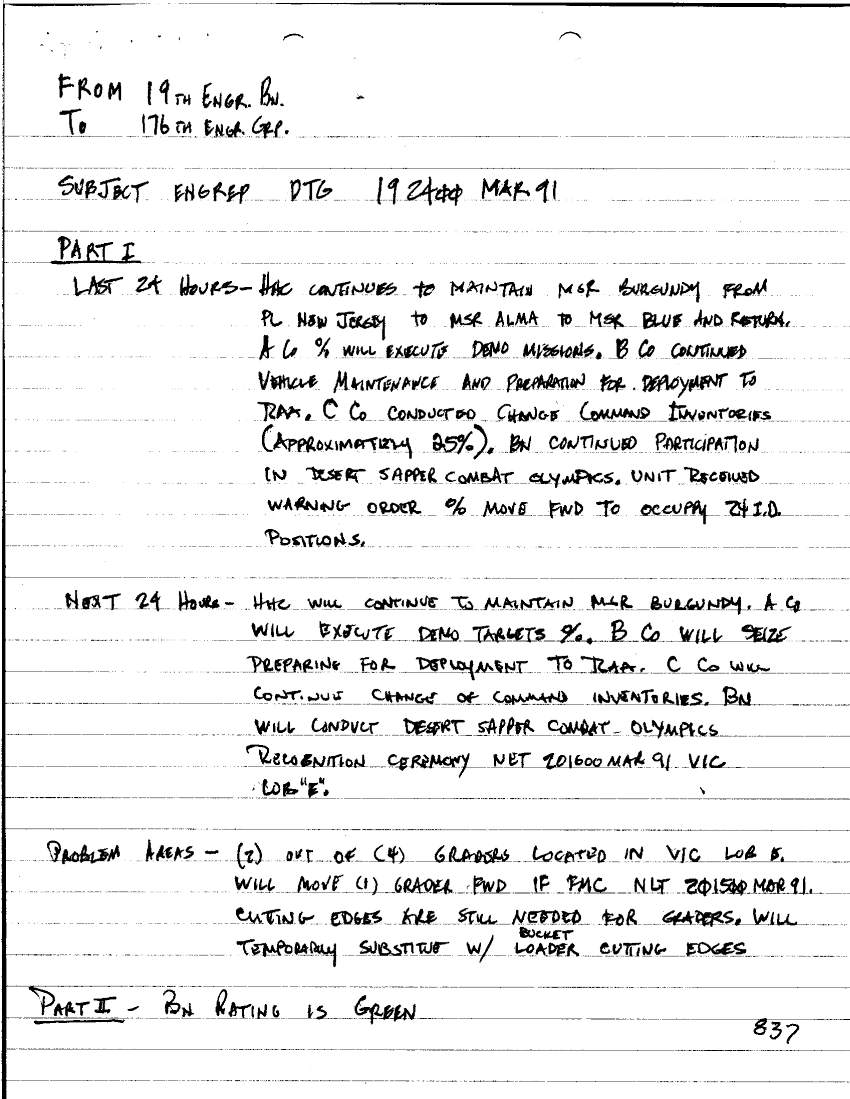 FROM 19TH ENGR. BN.
TO 176TH ENGR. GRP.
SUBJECT ENGREP DTG 192400 MAR 91
PART I
LAST 24 HOURS - HHC CONTINUES TO MAINTAIN MSR BURGUNDY FROM
PL NEW JERSEY TO MSR ALMA TO MSR BLUE AND RETURN.
A CO % WILL EXECUTE DEMO MISSIONS. B CO CONTINUED
VEHICLE MAINTENANCE AND PREPARATION FOR DEPLOYMENT TO
RAA. C CO CONDUCTED CHANGE COMMAND INVENTORIES
(APPROXIMATELY 25%). BN CONTINUED PARTICIPATION
IN DESERT SAPPER COMBAT OLYMPICS. UNIT RECEIVED
WARNING ORDER % MOVE FWD TO OCCUPY 24 I.D.
POSITIONS.
NEXT 24 HOURS - HHC WILL CONTINUE TO MAINTAIN MSR BURGUNDY. A CO
WILL EXECUTE DEMO TARGETS %. B CO WILL SEIZE
PREPARING FOR DEPLOYMENT TO RAA. C CO WILL
CONTINUE CHANGE OF COMMAND INVENTORIES. BN
WILL CONDUCT DESERT SAPPER COMBAT OLYMPICS
RECOGNITION CEREMONY NET 201600 MAR 91 VIC
LOB "E".
PROBLEM AREAS - (2) OUT OF (4) GRADERS LOCATED IN VIC LOB E.
WILL MOVE (1) GRADER FWD IF FMC NLT 201500 MAR 91.
CUTTING EDGES ARE STILL NEEDED FOR GRADERS. WILL
TEMPORARILY SUBSTITUTE W/ BUCKET LOADER CUTTING EDGES
PART II - BN RATING IS GREEN
837